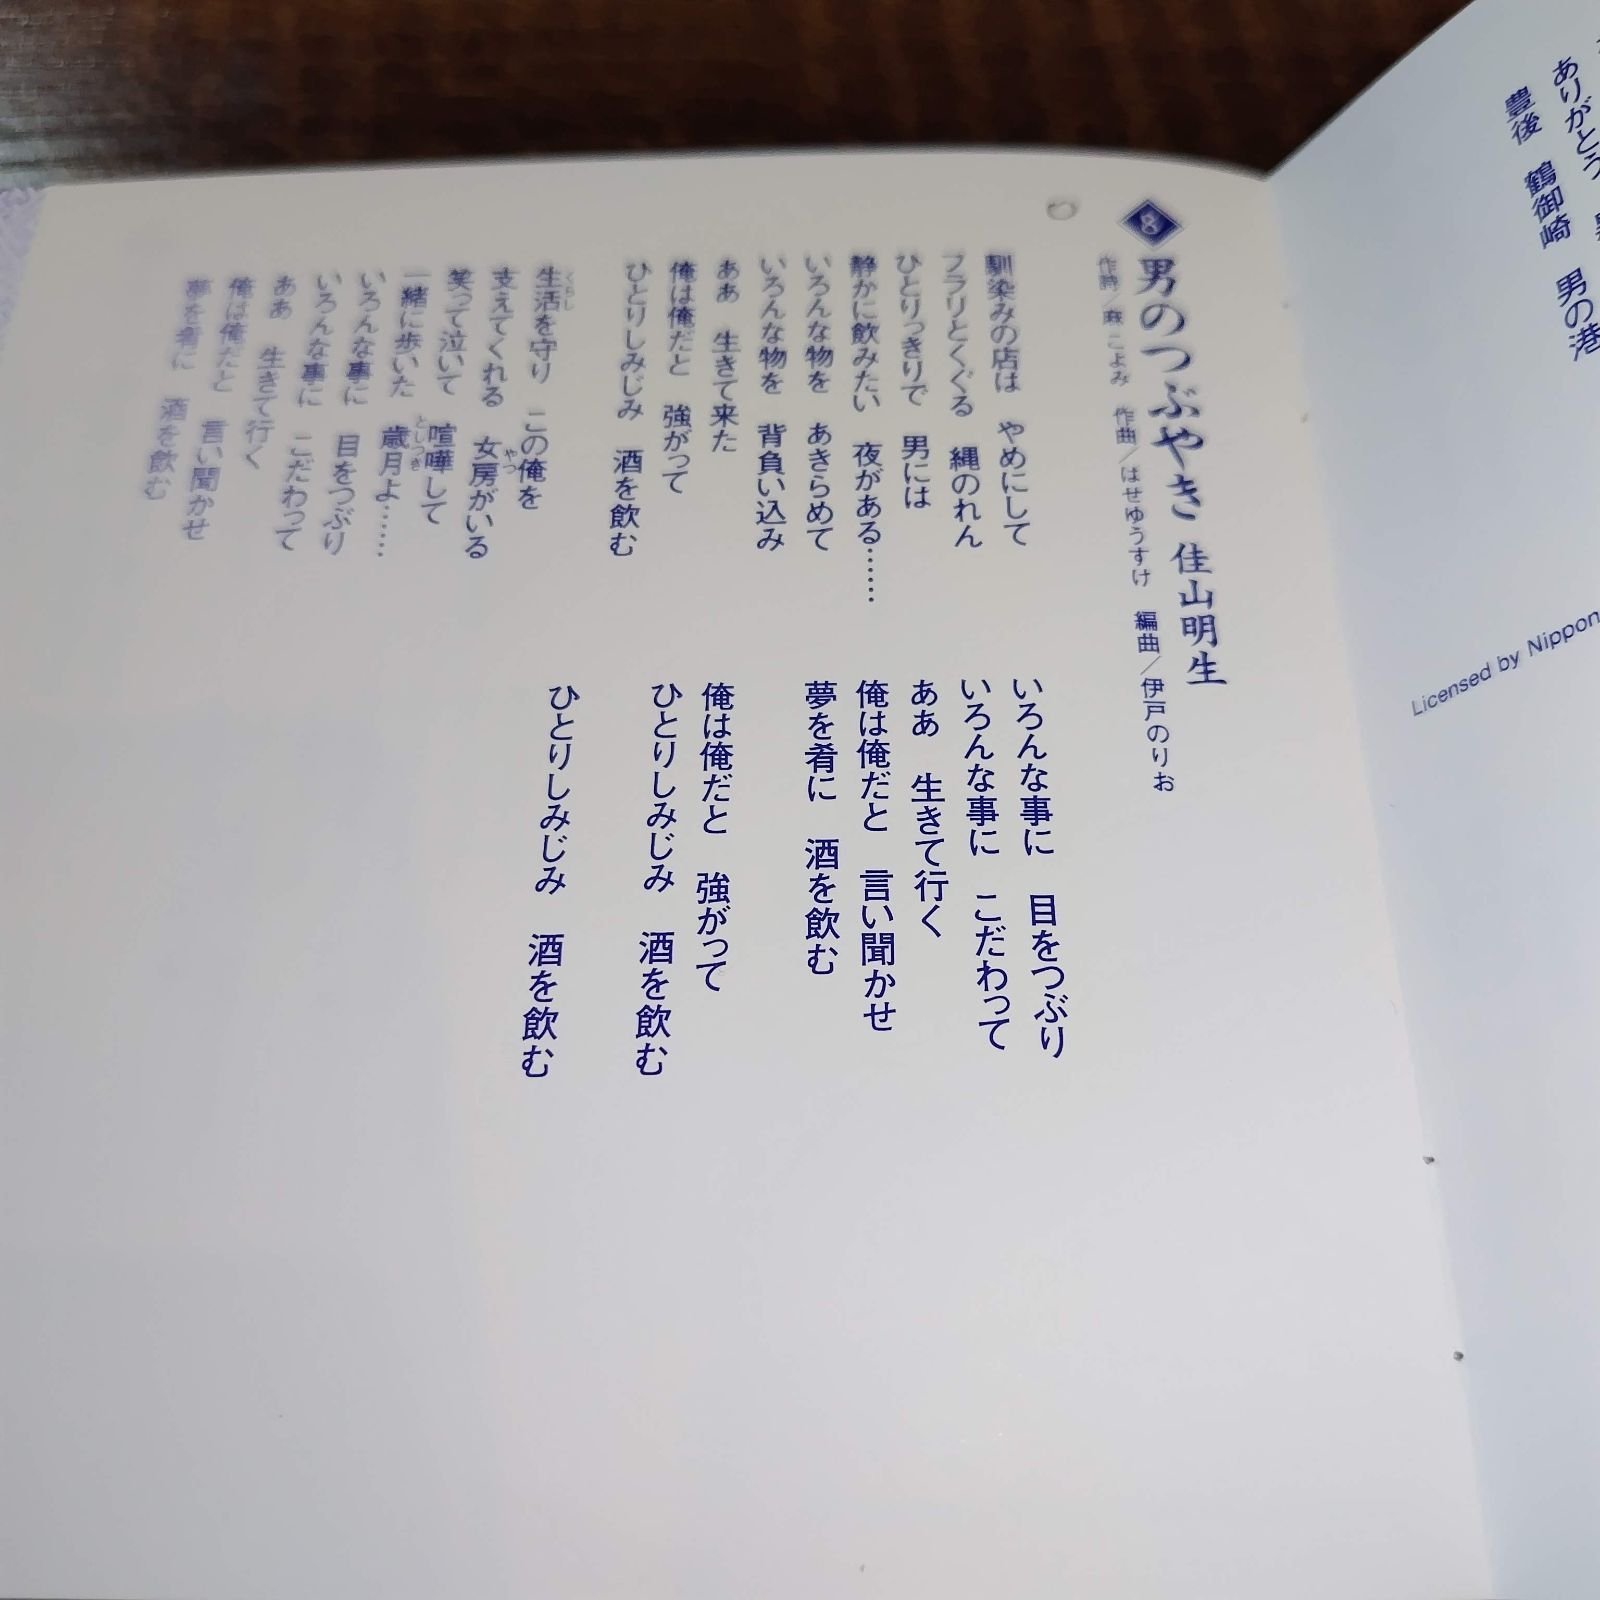 ありがとう
豊後　鶴御崎　男の港
Licensed by Nippon
8 男のつぶやき 佳山明生
作詩／麻こよみ　作曲／はせゆうすけ　編曲／伊戸のりお
馴染みの店は　やめにして
フラリとくぐる　縄のれん
ひとりっきりで　男には
静かに飲みたい　夜がある……
いろんな物を　あきらめて
いろんな物を　背負い込み
ああ　生きて来た
俺は俺だと　強がって
ひとりしみじみ　酒を飲む
生活(くらし)を守り　この俺を
支えてくれる　女房(やつ)がいる
笑って泣いて　喧嘩して
一緒に歩いた　歳月(としつき)よ……
いろんな事に　目をつぶり
いろんな事に　こだわって
ああ　生きて行く
俺は俺だと　言い聞かせ
夢を肴に　酒を飲む
いろんな事に　目をつぶり
いろんな事に　こだわって
ああ　生きて行く
俺は俺だと　言い聞かせ
夢を肴に　酒を飲む
俺は俺だと　強がって
ひとりしみじみ　酒を飲む
ひとりしみじみ　酒を飲む